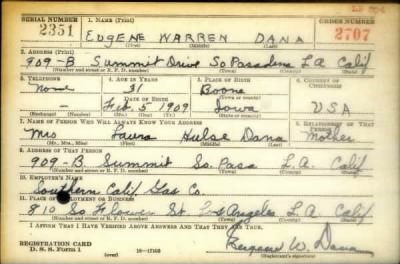 SERIAL NUMBER
1. NAME (Print)
ORDER NUMBER
2351
EUGENE WARREN DANA
2707
(First) (Middle) (Last)
2. ADDRESS (Print)
909-B Summit Drive So Pasadena L.A. Calif
(Number and street or R. F. D. number) (Town) (County) (State)
3. TELEPHONE
4. AGE IN YEARS
5. PLACE OF BIRTH
6. COUNTRY OF CITIZENSHIP
None
31
Boone
DATE OF BIRTH
(Town or county)
Feb. 5 1909
Iowa
USA
(Exchange) (Number)
(Mo.) (Day) (Yr.)
(State or country)
7. NAME OF PERSON WHO WILL ALWAYS KNOW YOUR ADDRESS
8. RELATIONSHIP OF THAT PERSON
Mrs Laura Hulse Dana Mother
(Mr., Mrs., Miss) (First) (Middle) (Last)
9. ADDRESS OF THAT PERSON
909-B Summit So. Pasa L.A. Calif
(Number and street or R. F. D. number) (Town) (County) (State)
10. EMPLOYER'S NAME
Southern Calif Gas Co.
11. PLACE OF EMPLOYMENT OR BUSINESS
810 So Flower St Los Angeles L.A. Calif
(Number and street or R. F. D. number) (Town) (County) (State)
I AFFIRM THAT I HAVE VERIFIED ABOVE ANSWERS AND THAT THEY ARE TRUE.
REGISTRATION CARD
D. S. S. Form 1
(over)
Eugene W. Dana
(Registrant's signature)